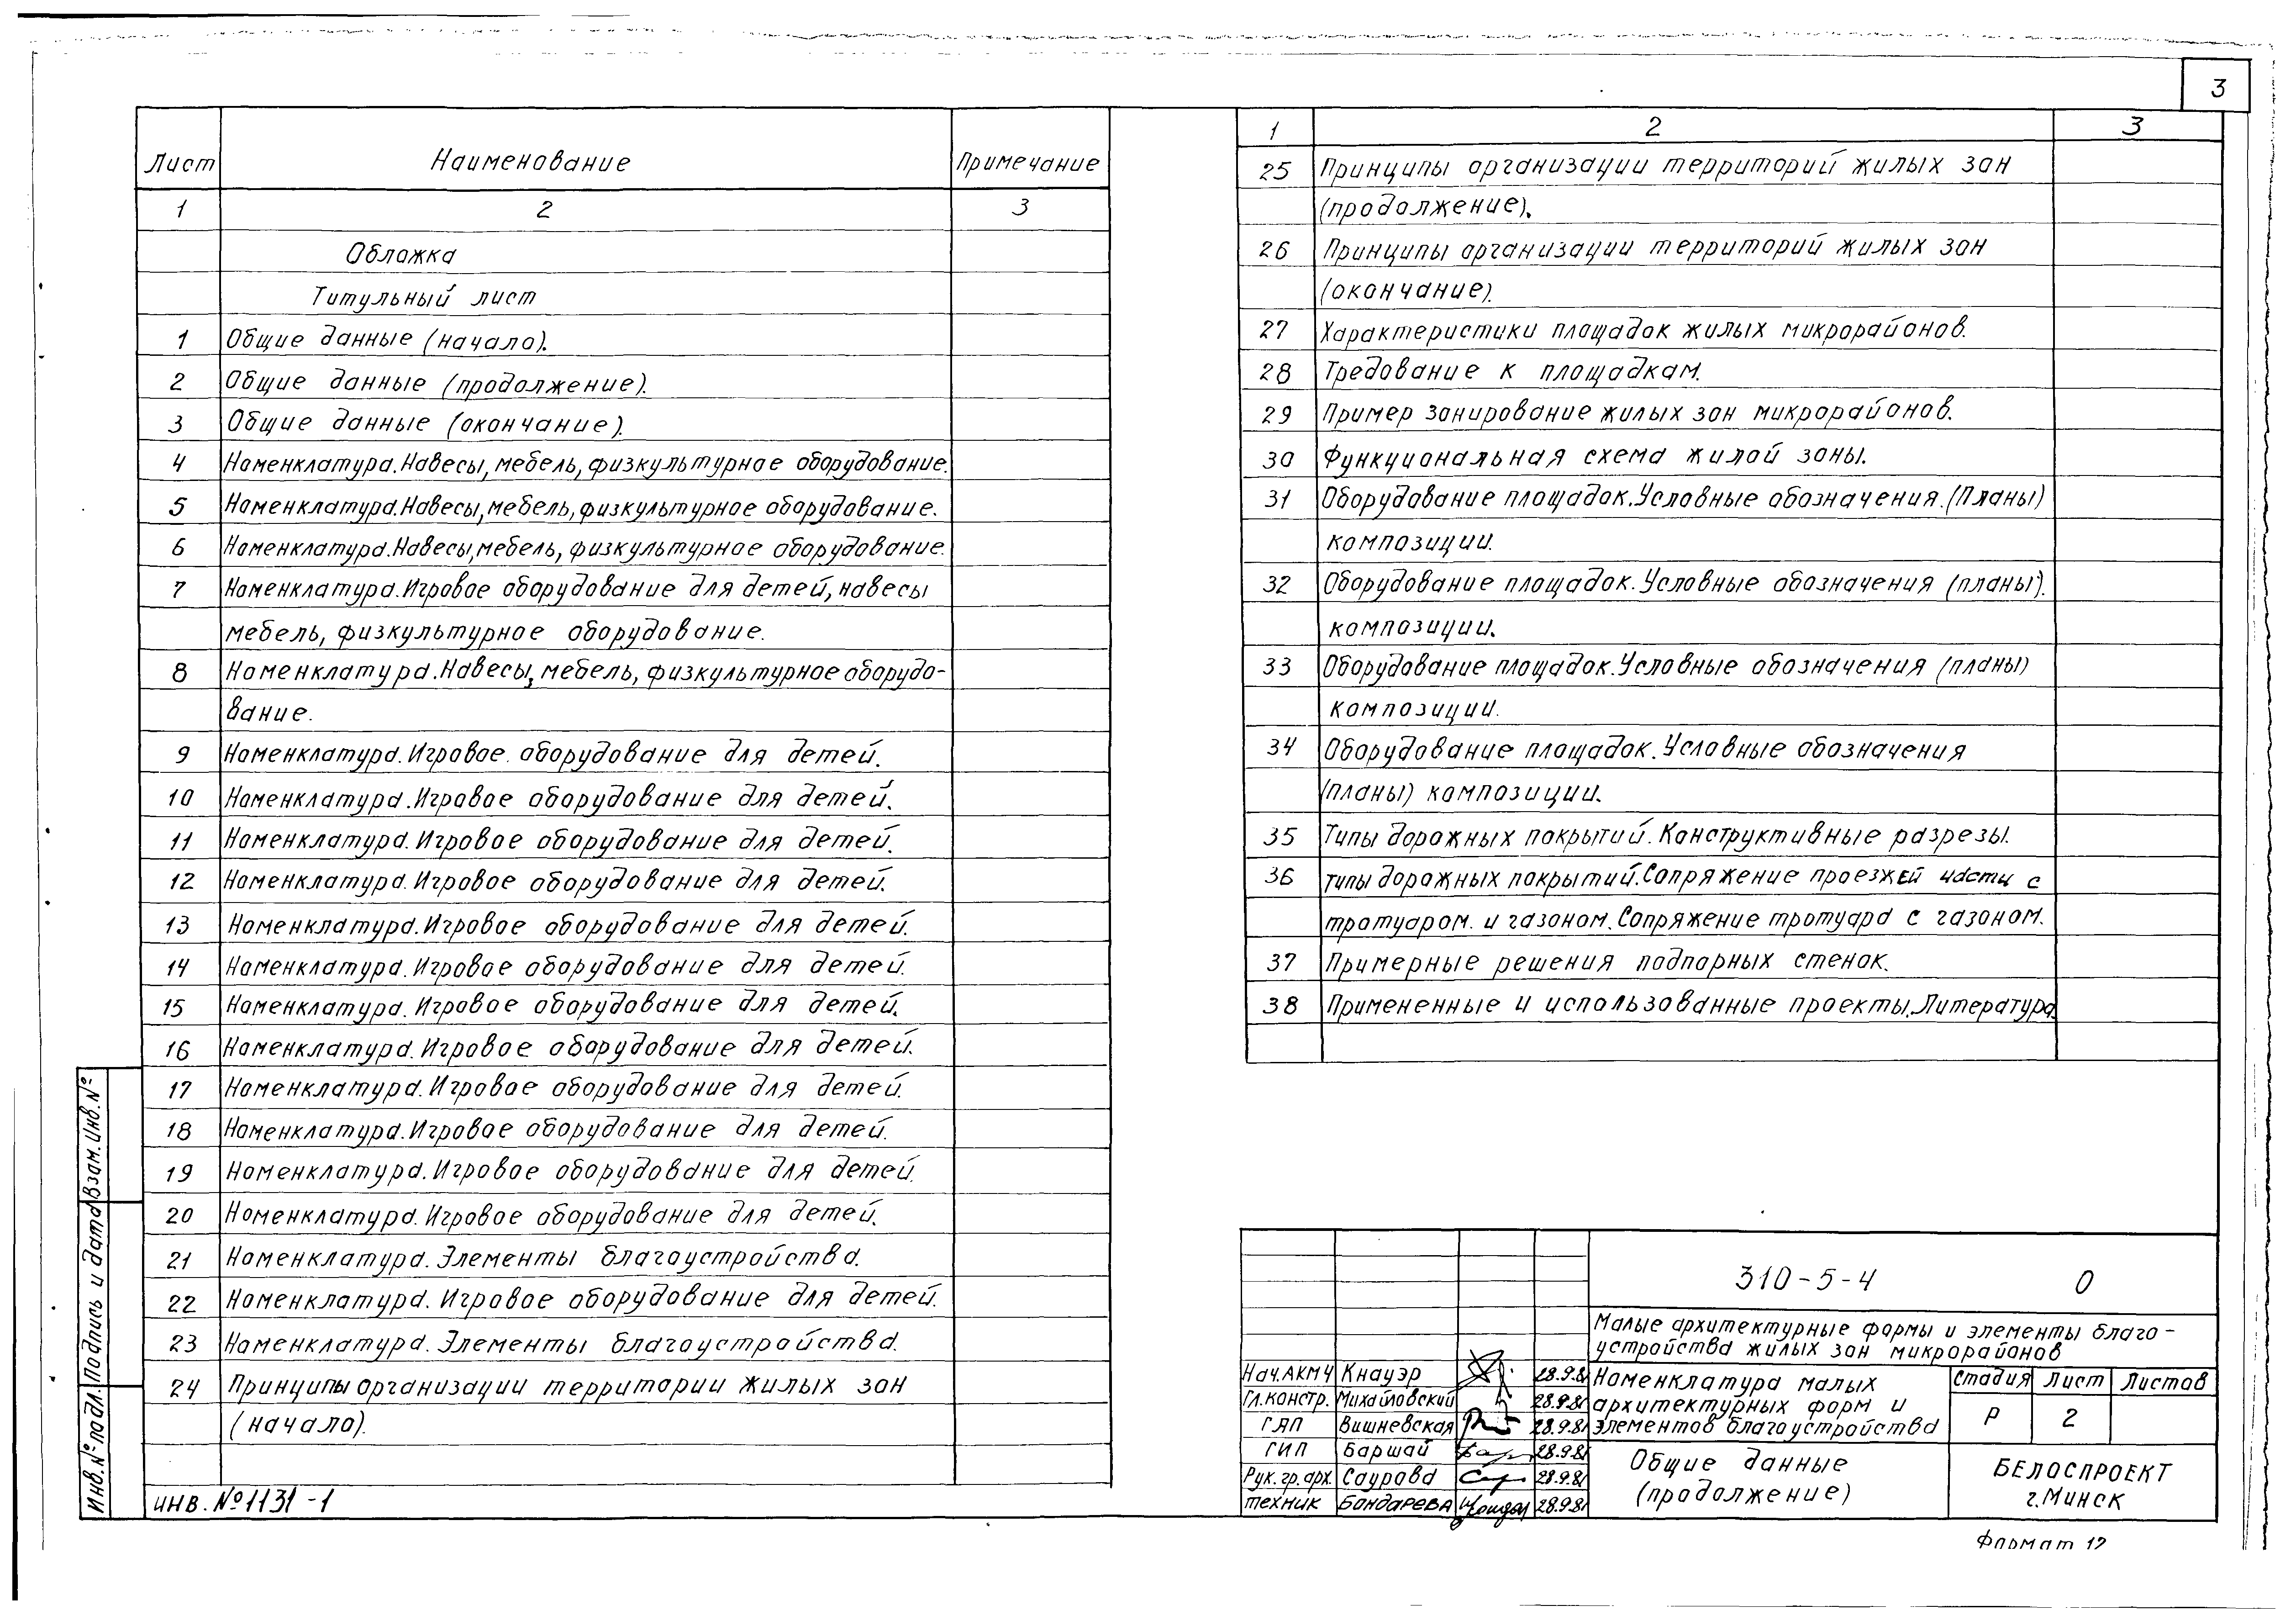 3
Лист Наименование Примечание
1 2 3
Обложка
Титульный лист
1 Общие данные (начало).
2 Общие данные (продолжение).
3 Общие данные (окончание).
4 Номенклатура. Навесы, мебель, физкультурное оборудование.
5 Номенклатура. Навесы, мебель, физкультурное оборудование.
6 Номенклатура. Навесы, мебель, физкультурное оборудование.
7 Номенклатура. Игровое оборудование для детей, навесы
мебель, физкультурное оборудование.
8 Номенклатура. Навесы, мебель, физкультурное оборудо-
вание.
9 Номенклатура. Игровое оборудование для детей.
10 Номенклатура. Игровое оборудование для детей.
11 Номенклатура. Игровое оборудование для детей.
12 Номенклатура. Игровое оборудование для детей.
13 Номенклатура. Игровое оборудование для детей.
14 Номенклатура. Игровое оборудование для детей.
15 Номенклатура. Игровое оборудование для детей.
16 Номенклатура. Игровое оборудование для детей.
17 Номенклатура. Игровое оборудование для детей.
18 Номенклатура. Игровое оборудование для детей.
19 Номенклатура. Игровое оборудование для детей.
20 Номенклатура. Игровое оборудование для детей.
21 Номенклатура. Элементы благоустройства.
22 Номенклатура. Игровое оборудование для детей.
23 Номенклатура. Элементы благоустройства.
24 Принципы организации территории жилых зон
(начало).
1 2 3
25 Принципы организации территорий жилых зон
(продолжение).
26 Принципы организации территорий жилых зон
(окончание).
27 Характеристики площадок жилых микрорайонов.
28 Тредование к площадкам.
29 Пример зонирование жилых зон микрорайонов.
30 Функциональная схема жилой зоны.
31 Оборудование площадок. Условные обозначения. (Планы)
композиции.
32 Оборудование площадок. Условные обозначения (планы).
композиции.
33 Оборудование площадок. Условные обозначения (планы)
композиции.
34 Оборудование площадок. Условные обозначения
(планы) композиции.
35 Типы дорожных покрытий. Конструктивные разрезы.
36 Типы дорожных покрытий. Сопряжение проезжей части с
тротуаром. и газоном. Сопряжение тротуара с газоном.
37 Примерные решения подпорных стенок.
38 Примененные и использованные проекты. Литература.
Инв. № подл. Подпись и дата Взам. инв. №
инв. № 1131-1
310-5-4 0
Малые архитектурные формы и элементы благо-
устройства жилых зон микрорайонов
Нач. АКМ4 Кнауэр 28.9.81
Гл. констр. Михайловский 28.9.81
ГАП Вишневская 28.9.81
ГИП Баршай 28.9.81
Рук. гр. арх. Саурова 28.9.81
техник Бондарева 28.9.81
Номенклатура малых
архитектурных форм и
элементов благоустройства
Стадия Лист Листов
Р 2
Общие данные
(продолжение)
БЕЛОСПРОЕКТ
г. Минск
Формат 12